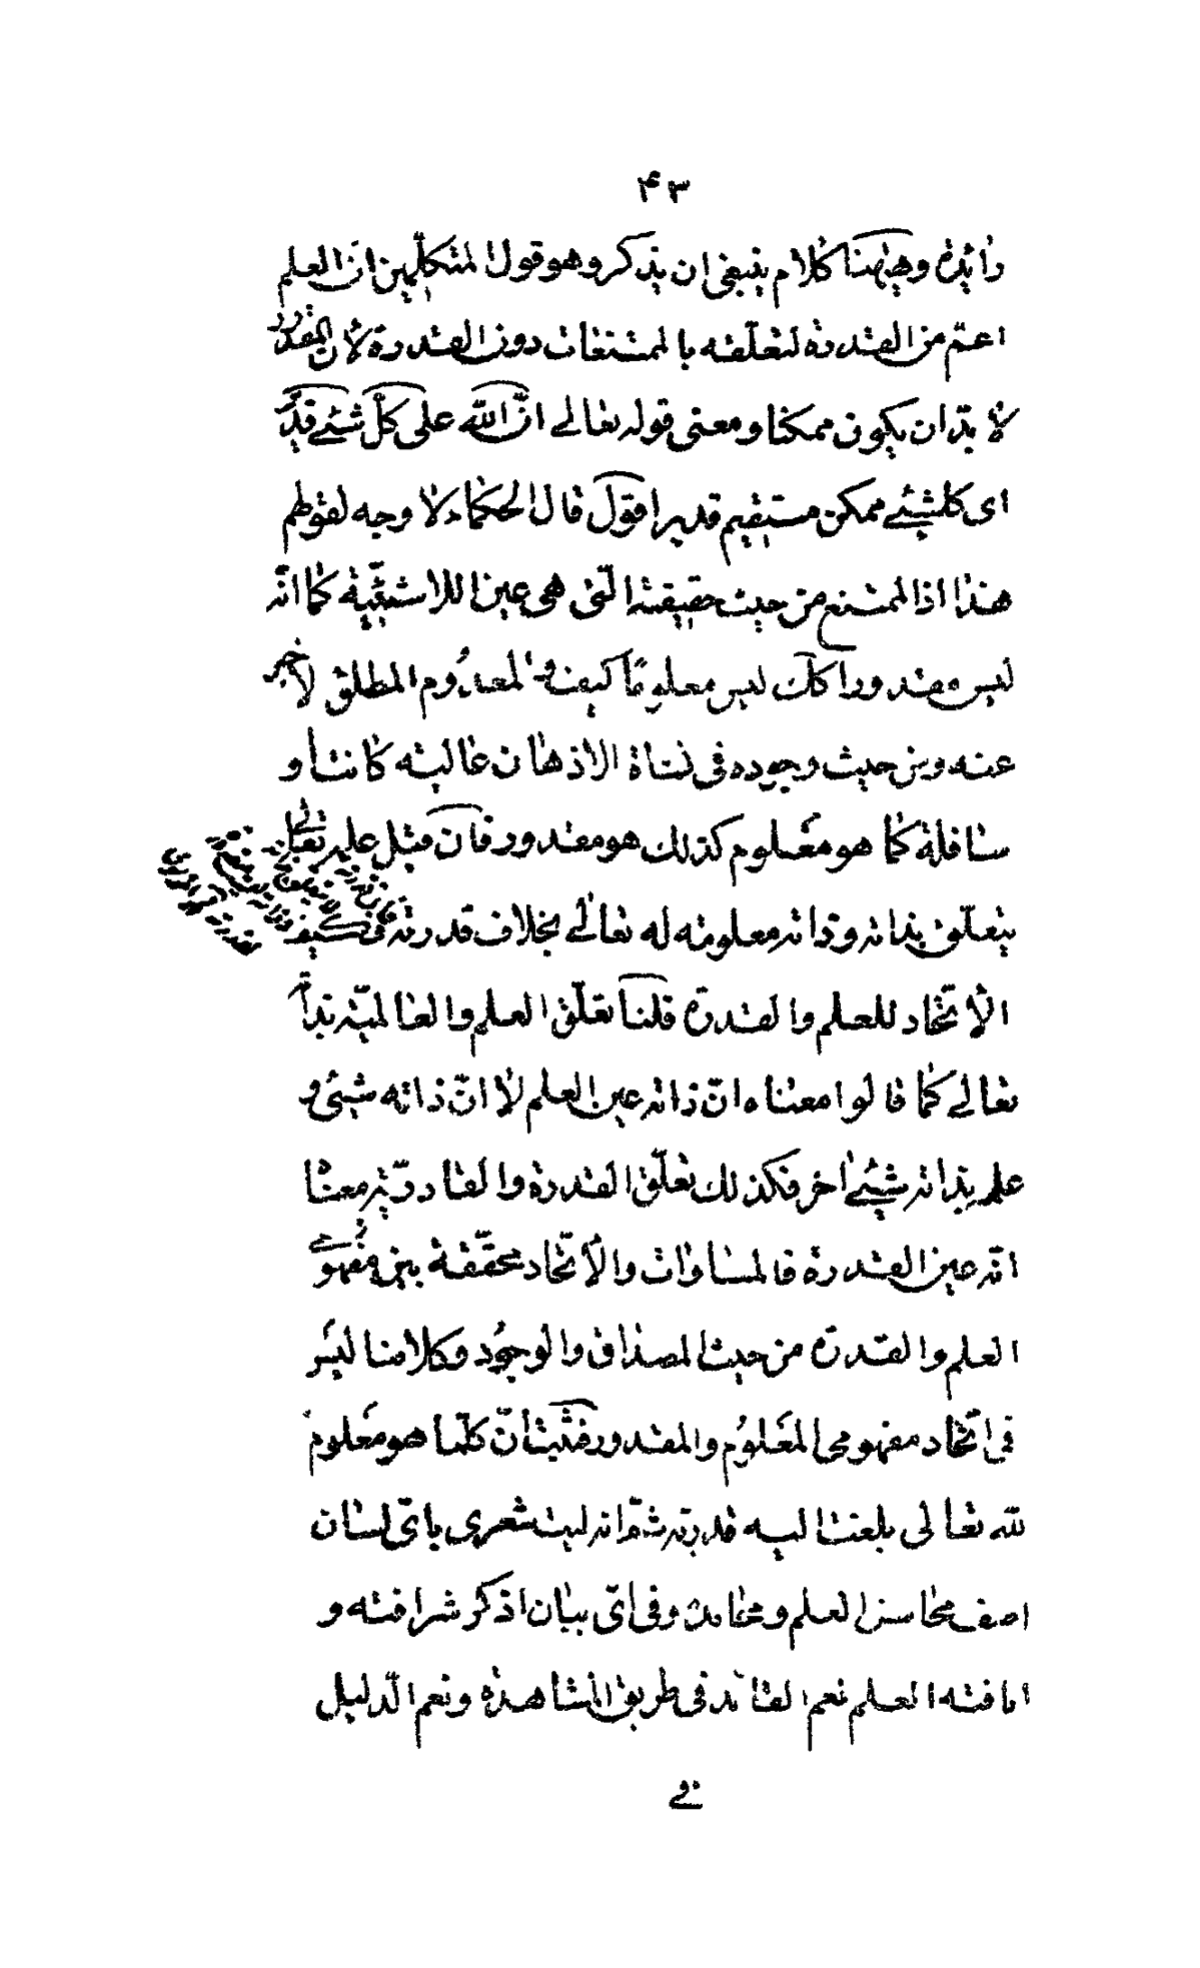 ۴۳
دائرة وهيهنا كلام ينبغى ان يذكر وهو قول المتكلّمين انّ العلم
اعمّ من القدرة لتعلّقه بالممتنعات دون القدرة لأن المقدور
لا بدّ ان يكون ممكنا ومعنى قوله تعالے انّ اللّه على كلّ شئے قدير
اى كلشئے ممكن مستقيم قدير اقول قال الحكماء لا وجه لقولهم
هذا اذا الممتنع من حيث حقيقته الّتى هى عين اللاشيئيّة كما انّه
ليس مقدورا كك ليس معلومًا كيف والمعدوم المطلق لا خبر
عنه ومن حيث وجوده فى نشاة الاذهان عالية كانت او
سافلة كما هو معلوم كذلك هو مقدور فان قيل علمه تعالى
يتعلّق بذاته وذاته معلومته له تعالے بخلاف قدرته فكيف
الاتّحاد للعلم والقدرة قلنا تعلّق العلم والعالميّة بذاته
تعالے كما قالوا معناه انّ ذاته عين العلم لا انّ ذاته شيئى و
علمه بذاته شيئے اخر فكذلك تعلّق القدرة والقادريّة معناه
انّه عين القدرة فالمساوات والأتّحاد محقّقة بين مفهومے
العلم والقدرة من حيث المصداق والوجود وكلامنا ليس
فى اتّحاد مفهومى المعلوم والمقدور فثبت انّ كلّما هو معلوم
للّه تعالى بلغت اليه قدرته ثمّ انه ليت شعرى باىّ لسان
اصف محاسن العلم ومحامده وفى اىّ بيان اذكر شرافته و
انافته العلم نعم القائد فى طريق المشاهدة ونعم الدّليل
فے